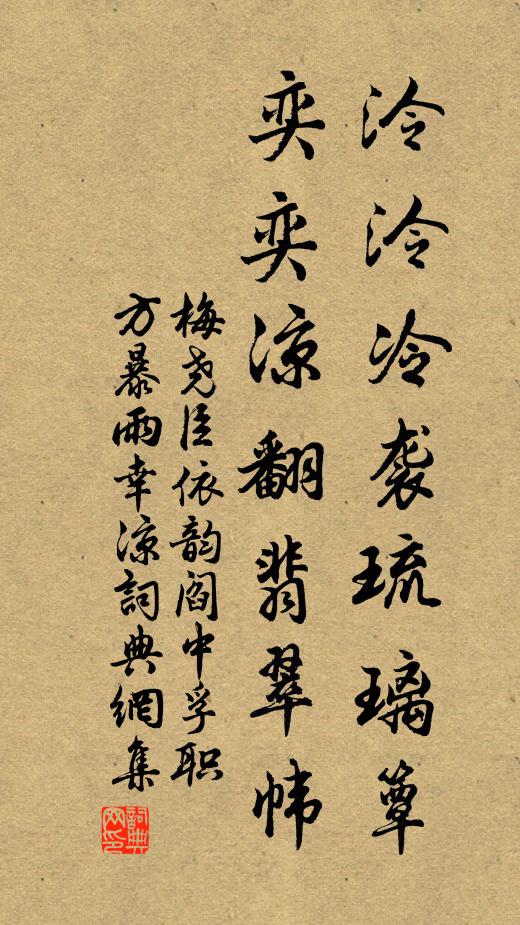 泠泠冷袭琉璃簟
奕奕凉翻翡翠帏
梅尧臣依韵阎中孚职
方暴雨幸凉詞典網集
詞典网印